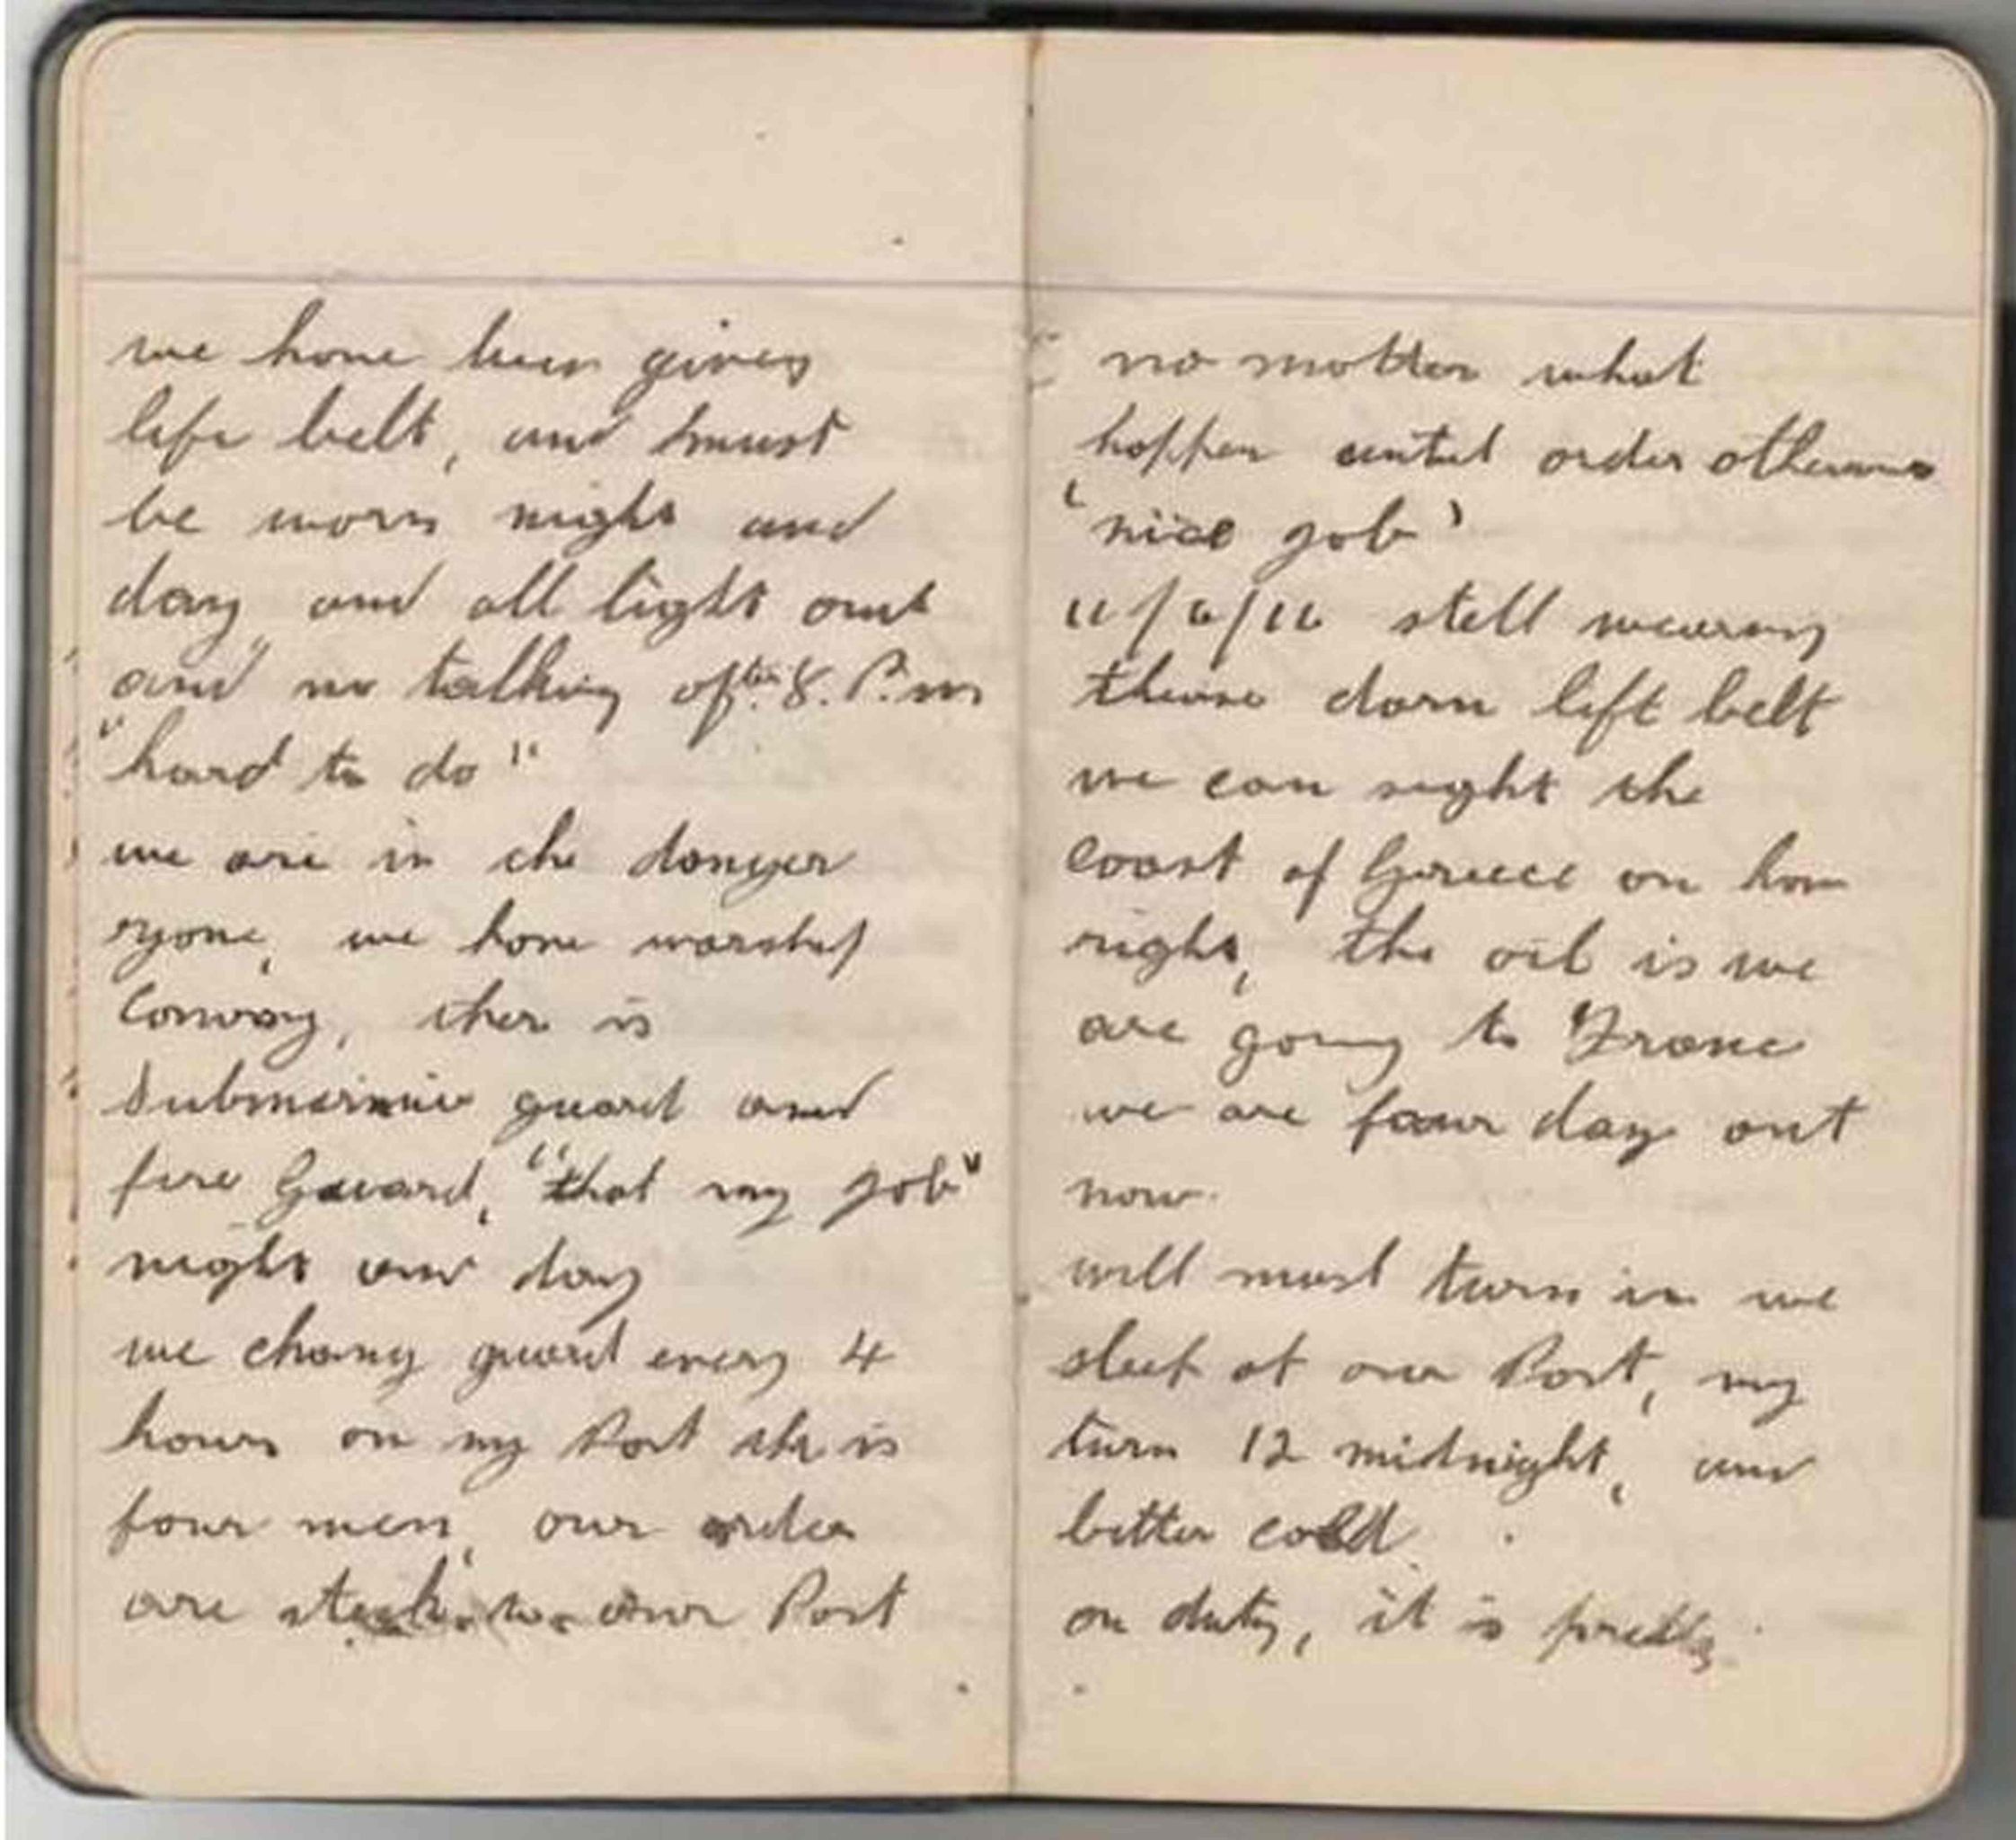 we have been given
life belt, and must
be worn night and
day, and all light out
and no talking after 8. P.m
"hard to do"
we are in the danger
zyone, we have warship
Convoy, ther is
Submarinie guard and
fire Gauard, "that my job"
night and day
we chang guard every 4
hours on my Post ther is
four men, our order
are stick to our Post
no matter what
happen until order otherwise
'nice job'
11/6/16 still wearing
these darn lift belt
we can sight the
Coast of Greece on
right, the oil is we
are going to "Franc
we are four day out
now.
will must turn in we
sleep at our Post, my
turn 12 midnight, and
bitter cold.
on duty, it is pretty